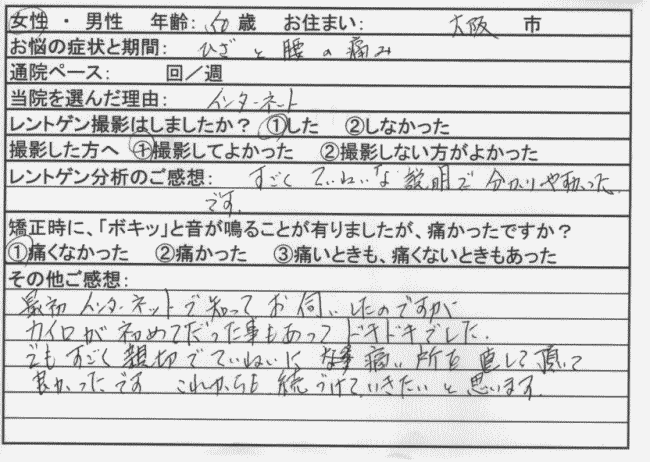 女性 ・ 男性 年齢: 50 歳 お住まい: 大阪 市
お悩の症状と期間: ひざと腰の痛み
通院ペース: 回/週
当院を選んだ理由: インターネット
レントゲン撮影はしましたか? ①した ②しなかった
撮影した方へ ①撮影してよかった ②撮影しない方がよかった
レントゲン分析のご感想: すごくていねいな説明で分かりやすかった
です。
矯正時に、「ボキッ」と音が鳴ることが有りましたが、痛かったですか?
①痛くなかった ②痛かった ③痛いときも、痛くないときもあった
その他ご感想:
最初インターネットで知ってお伺いしたのですが
カイロが初めてだった事もあってドキドキでした。
でもすごく親切でていねいに 痛い所を直して頂いて
良かったです これからも続づけていきたいと思います。